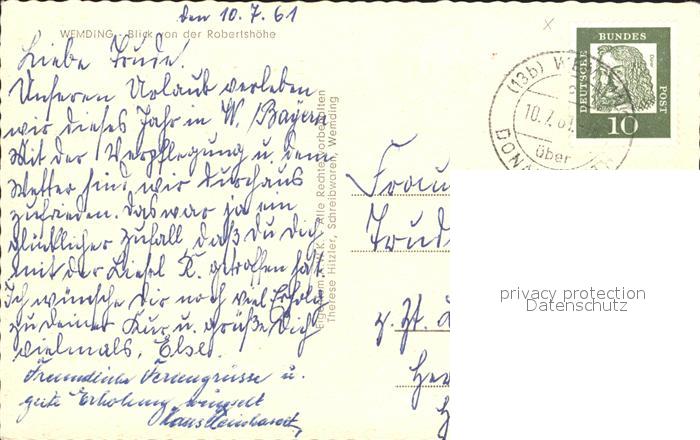 den 10.7.61
WEMDING - Blick von der Robertshöhe
Liebe Trude!
Unseren Urlaub verleben
wir dieses Jahr in W./Bayern
Mit der Verpflegung u. dem
Wetter sind wir durchaus
zufrieden. Das war ja ein
glücklicher Zufall, daß Du Dich
mit der Liesel K. getroffen hast.
Ich wünsche Dir noch viel Erfolg
zu deiner Kur u. grüße Dich
vielmals, Else.
Freundliche Feriengrüsse u.
gute Erholung wünscht
Alle Rechte vorbehalten
Therese Hitzler, Schreibwaren, Wemding
DEUTSCHE BUNDES POST
10
(13b)
10.7.61
über
Frau
Trud
z. Zt.
privacy protection
Datenschutz